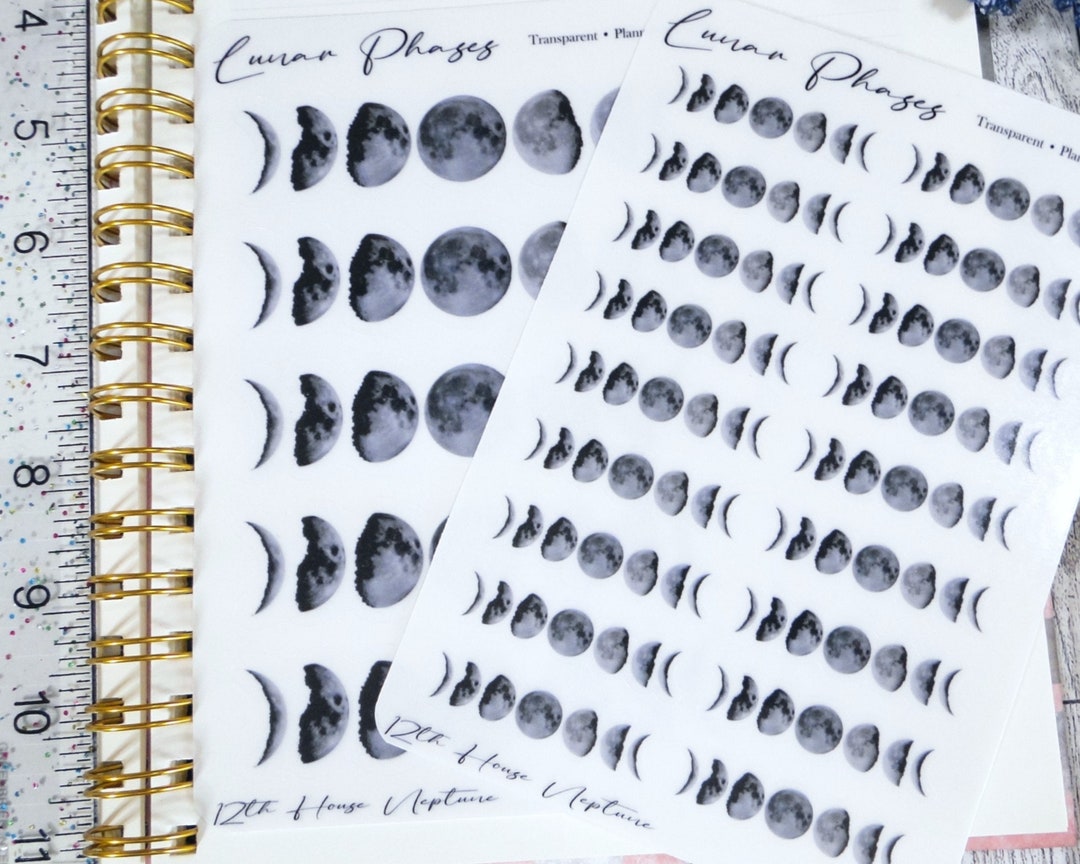 4
5
6
7
8
9
10
11
Lunar Phases
Transparent •
12th House Neptune
Lunar Phases
Transparent •
12th House Neptune